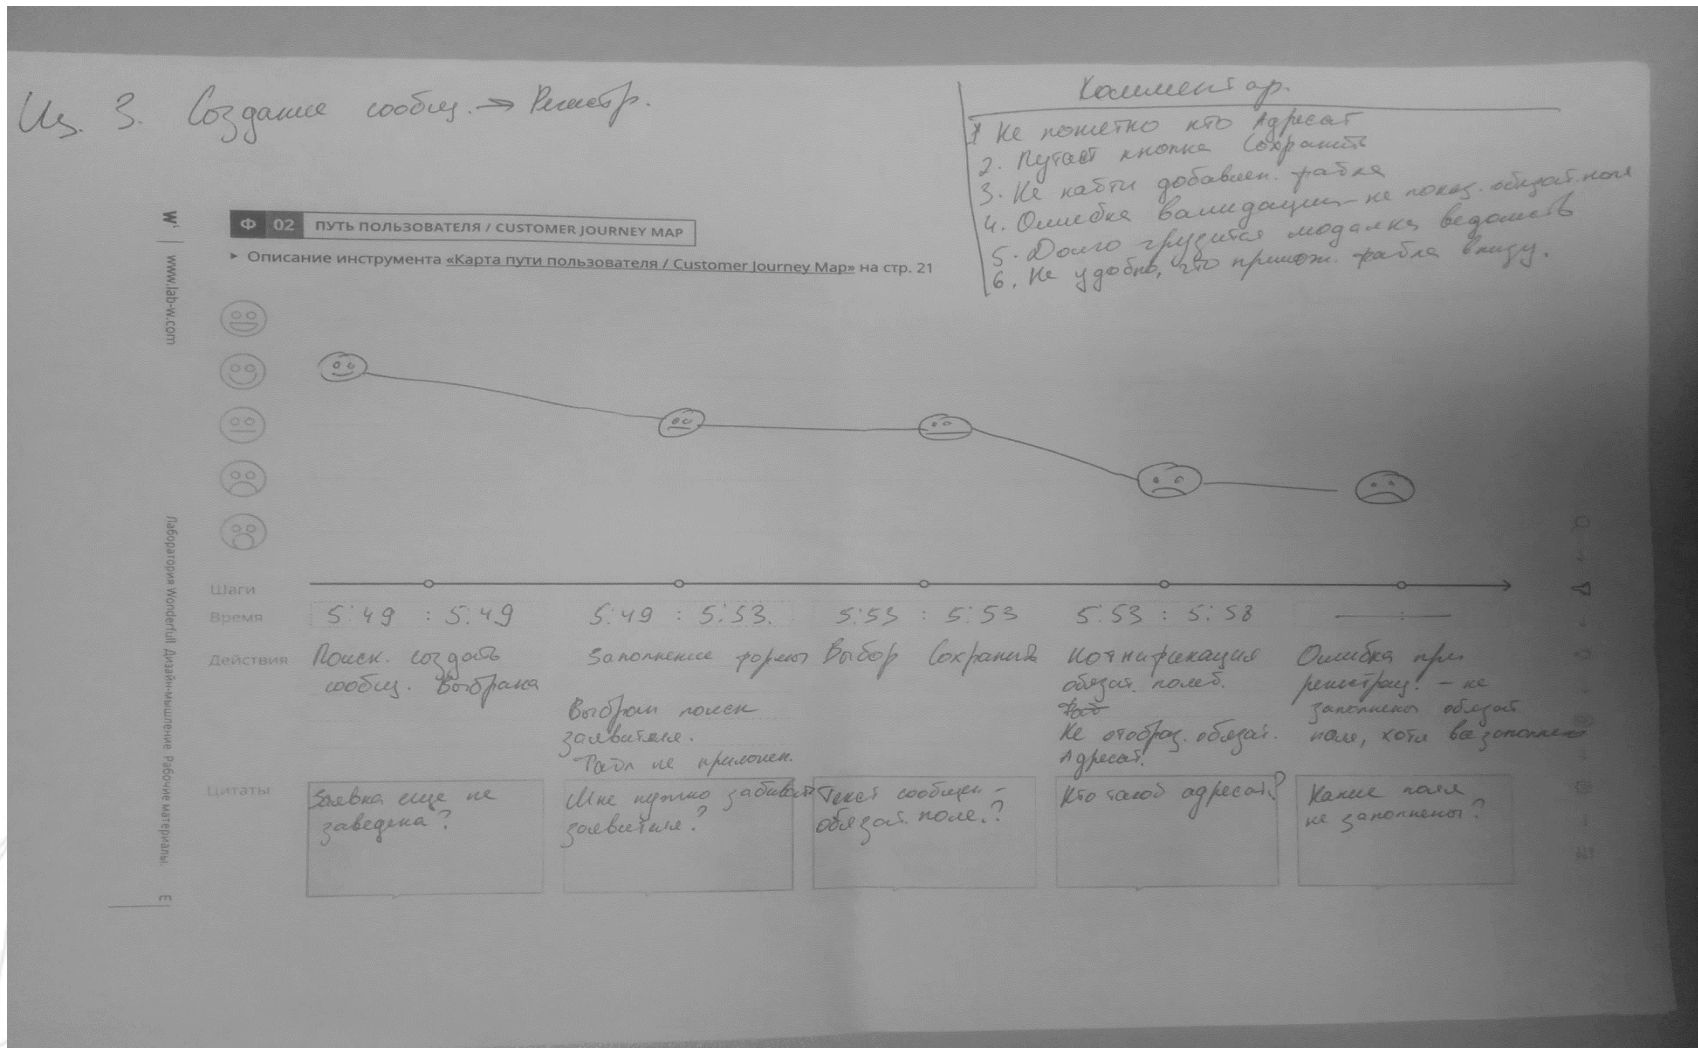 Сц. 3. Создание сообщ. → Регистр.
Комментар.
1 Не понятно кто Адресат
2. Путает кнопка Сохранить
3. Не найти добавлен. файла
4. Ошибка валидации – не показ. обязат. поля
5. Долго грузится модалка ведомств
6. Не удобно, что прилож. файла внизу.
Ф 02 ПУТЬ ПОЛЬЗОВАТЕЛЯ / CUSTOMER JOURNEY MAP
▸ Описание инструмента «Карта пути пользователя / Customer Journey Map» на стр. 21
W
www.lab-w.com
Лаборатория Wonderfull Дизайн-мышление Рабочие материалы
Шаги
Время
5:49 : 5:49
5:49 : 5:53.
5:53 : 5:53
5:53 : 5:58
— : —
Действия
Поиск. создать
сообщ. Выбрана
Заполнение формы
Выбрали поиск
заявителя.
Файл не приложен.
Выбор Сохранить
Нотификация
обязат. полей.
Не отображ. обязат.
Адресат.
Ошибка при
регистрац. – не
заполнены обязат
поля, хотя все заполнено
Цитаты
Заявка еще не
заведена?
Мне нужно забивать
заявителя?
Текст сообщен –
обязат. поле.?
Кто такой адресат?
Какие поля
не заполнены?